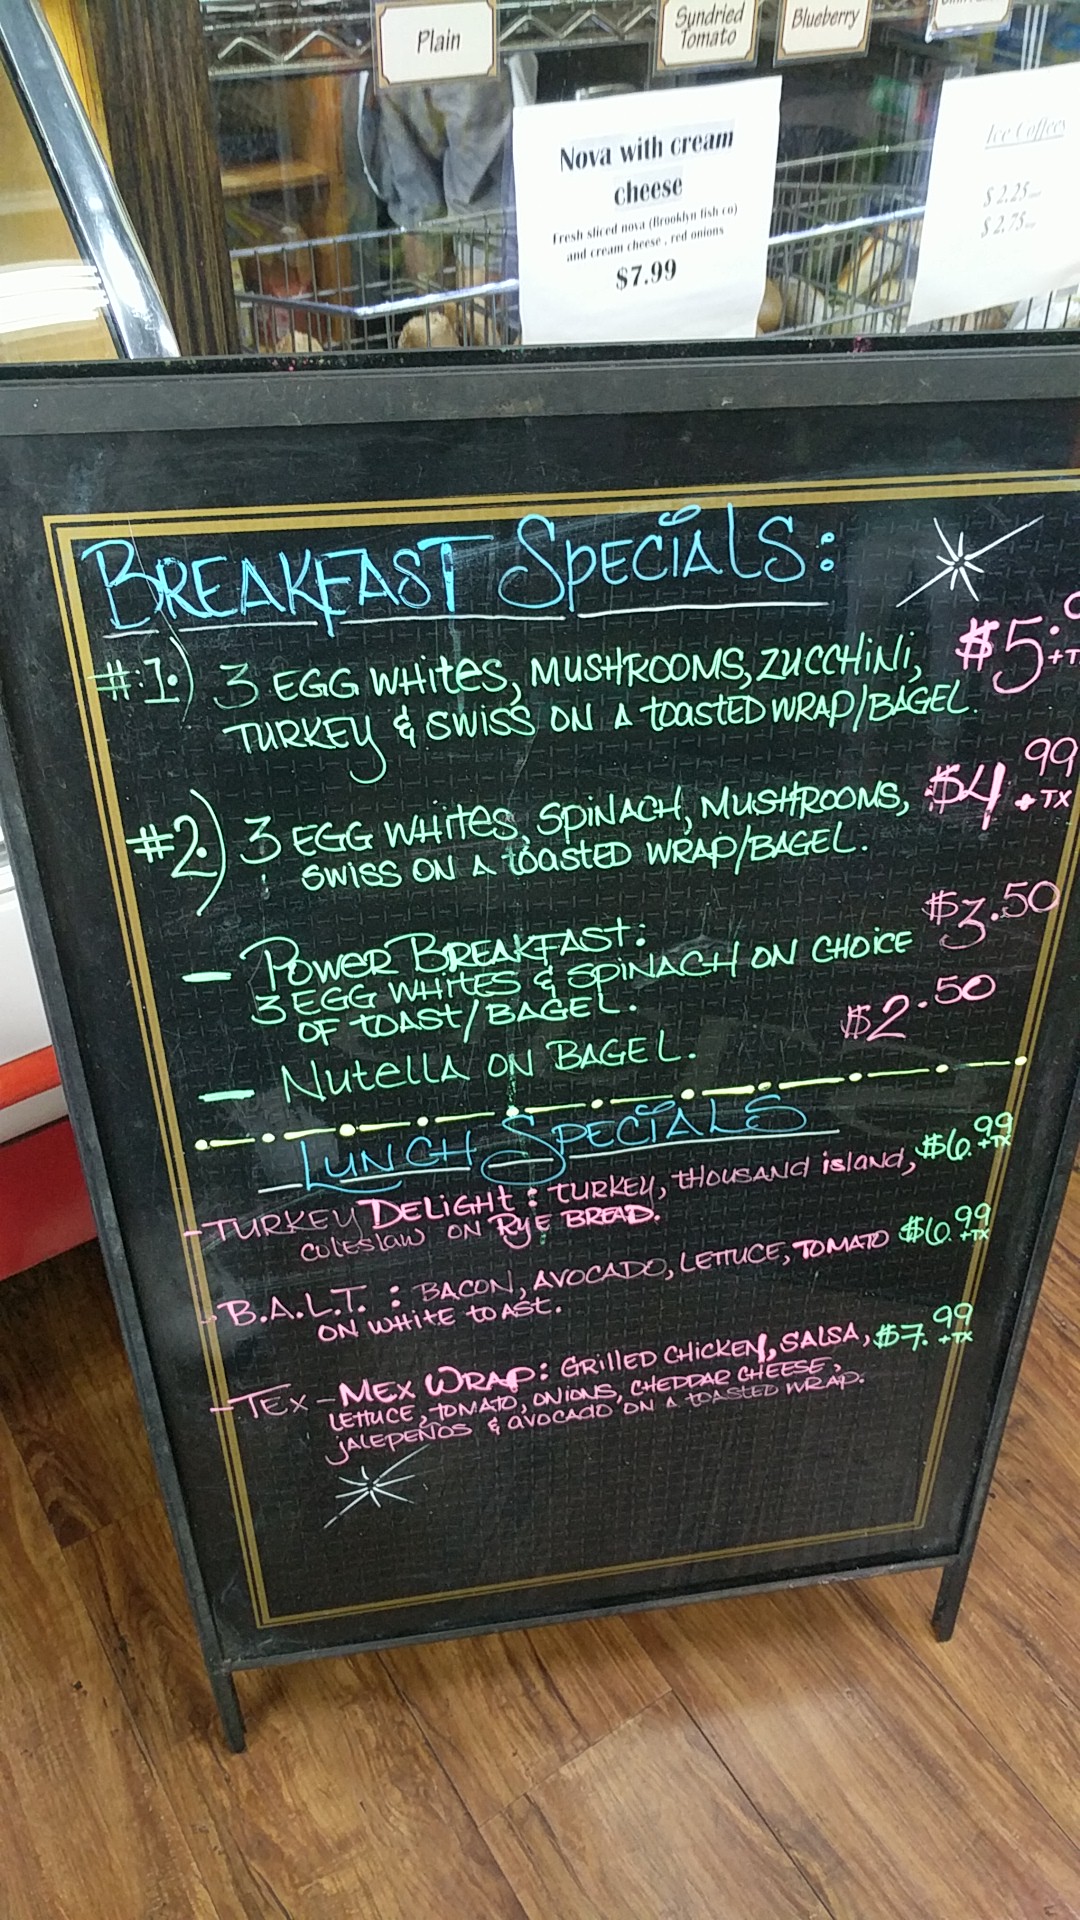 Plain
Sundried
Tomato
Blueberry
Nova with cream
cheese
Fresh sliced nova (Brooklyn fish co)
and cream cheese , red onions
$7.99
Ice Coffees
$2.25
$2.75
BREAKFAST SPECIALS:
#1.) 3 EGG WHITES, MUSHROOMS, ZUCCHINI,
TURKEY & SWISS ON A TOASTED WRAP/BAGEL.
#2.) 3 EGG WHITES, SPINACH, MUSHROOMS, $4.99 +TX
SWISS ON A TOASTED WRAP/BAGEL.
- POWER BREAKFAST: $3.50
3 EGG WHITES & SPINACH ON CHOICE
OF TOAST/BAGEL.
- NUTELLA ON BAGEL. $2.50
LUNCH SPECIALS
- TURKEY DELIGHT: TURKEY, THOUSAND ISLAND, $6.99 +TX
COLESLAW ON RYE BREAD.
- B.A.L.T. : BACON, AVOCADO, LETTUCE, TOMATO $6.99 +TX
ON WHITE TOAST.
- TEX-MEX WRAP: GRILLED CHICKEN, SALSA, $7.99 +TX
LETTUCE, TOMATO, ONIONS, CHEDDAR CHEESE,
JALEPEÑOS & AVOCADO ON A TOASTED WRAP.